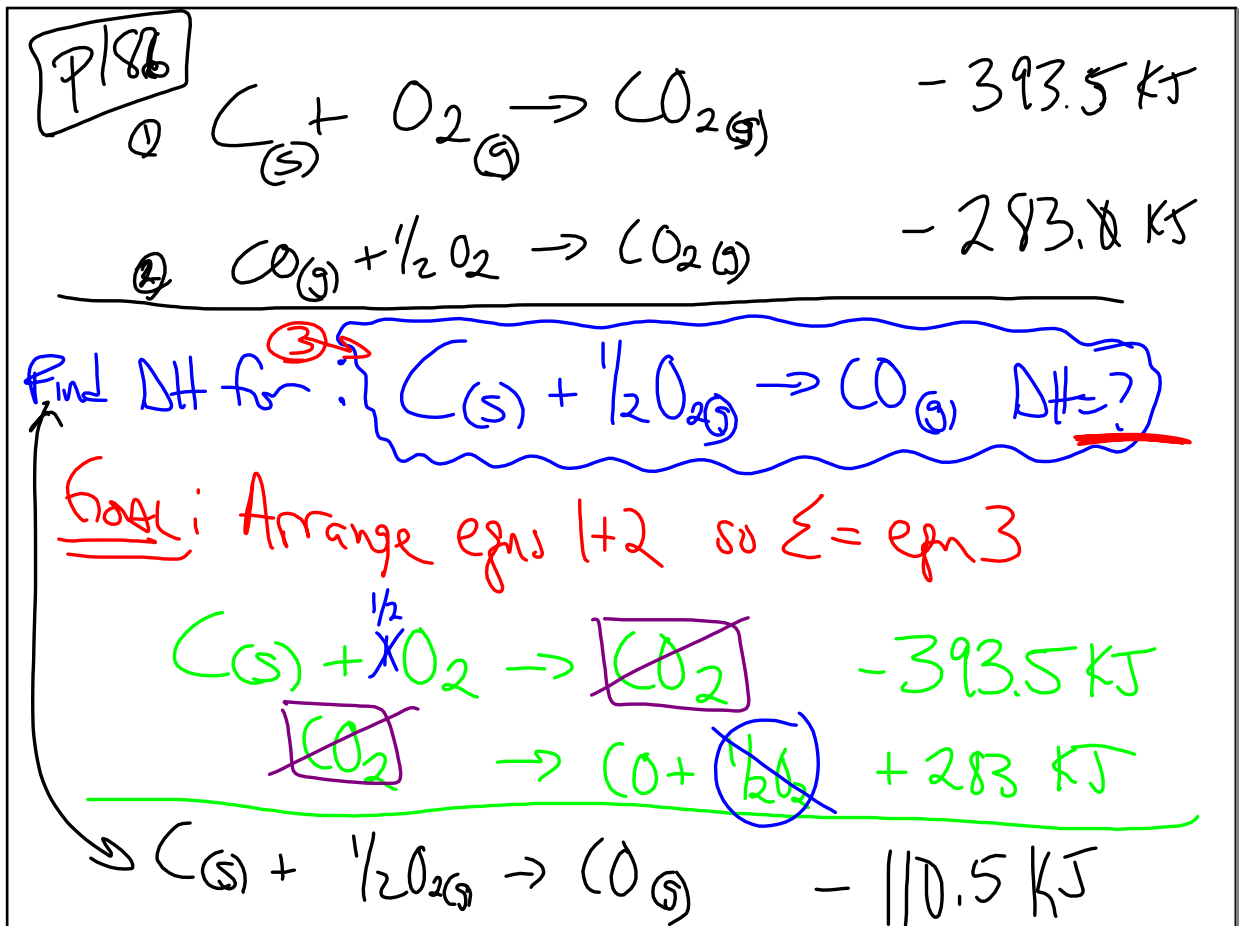 p186
① C(s) + O2(g) → CO2(g) -393.5 KJ
② CO(g) + 1/2 O2 → CO2(g) - 283.0 KJ
③
Find ΔH for : C(s) + 1/2O2(g) → CO(g) ΔH=?
GOAL : Arrange eqns 1+2 so Σ = eqn 3
1/2
C(s) + XO2 → CO2 -393.5 KJ
CO2 → CO + 1/2O2 + 283 KJ
C(s) + 1/2O2(g) → CO(g) - 110.5 KJ